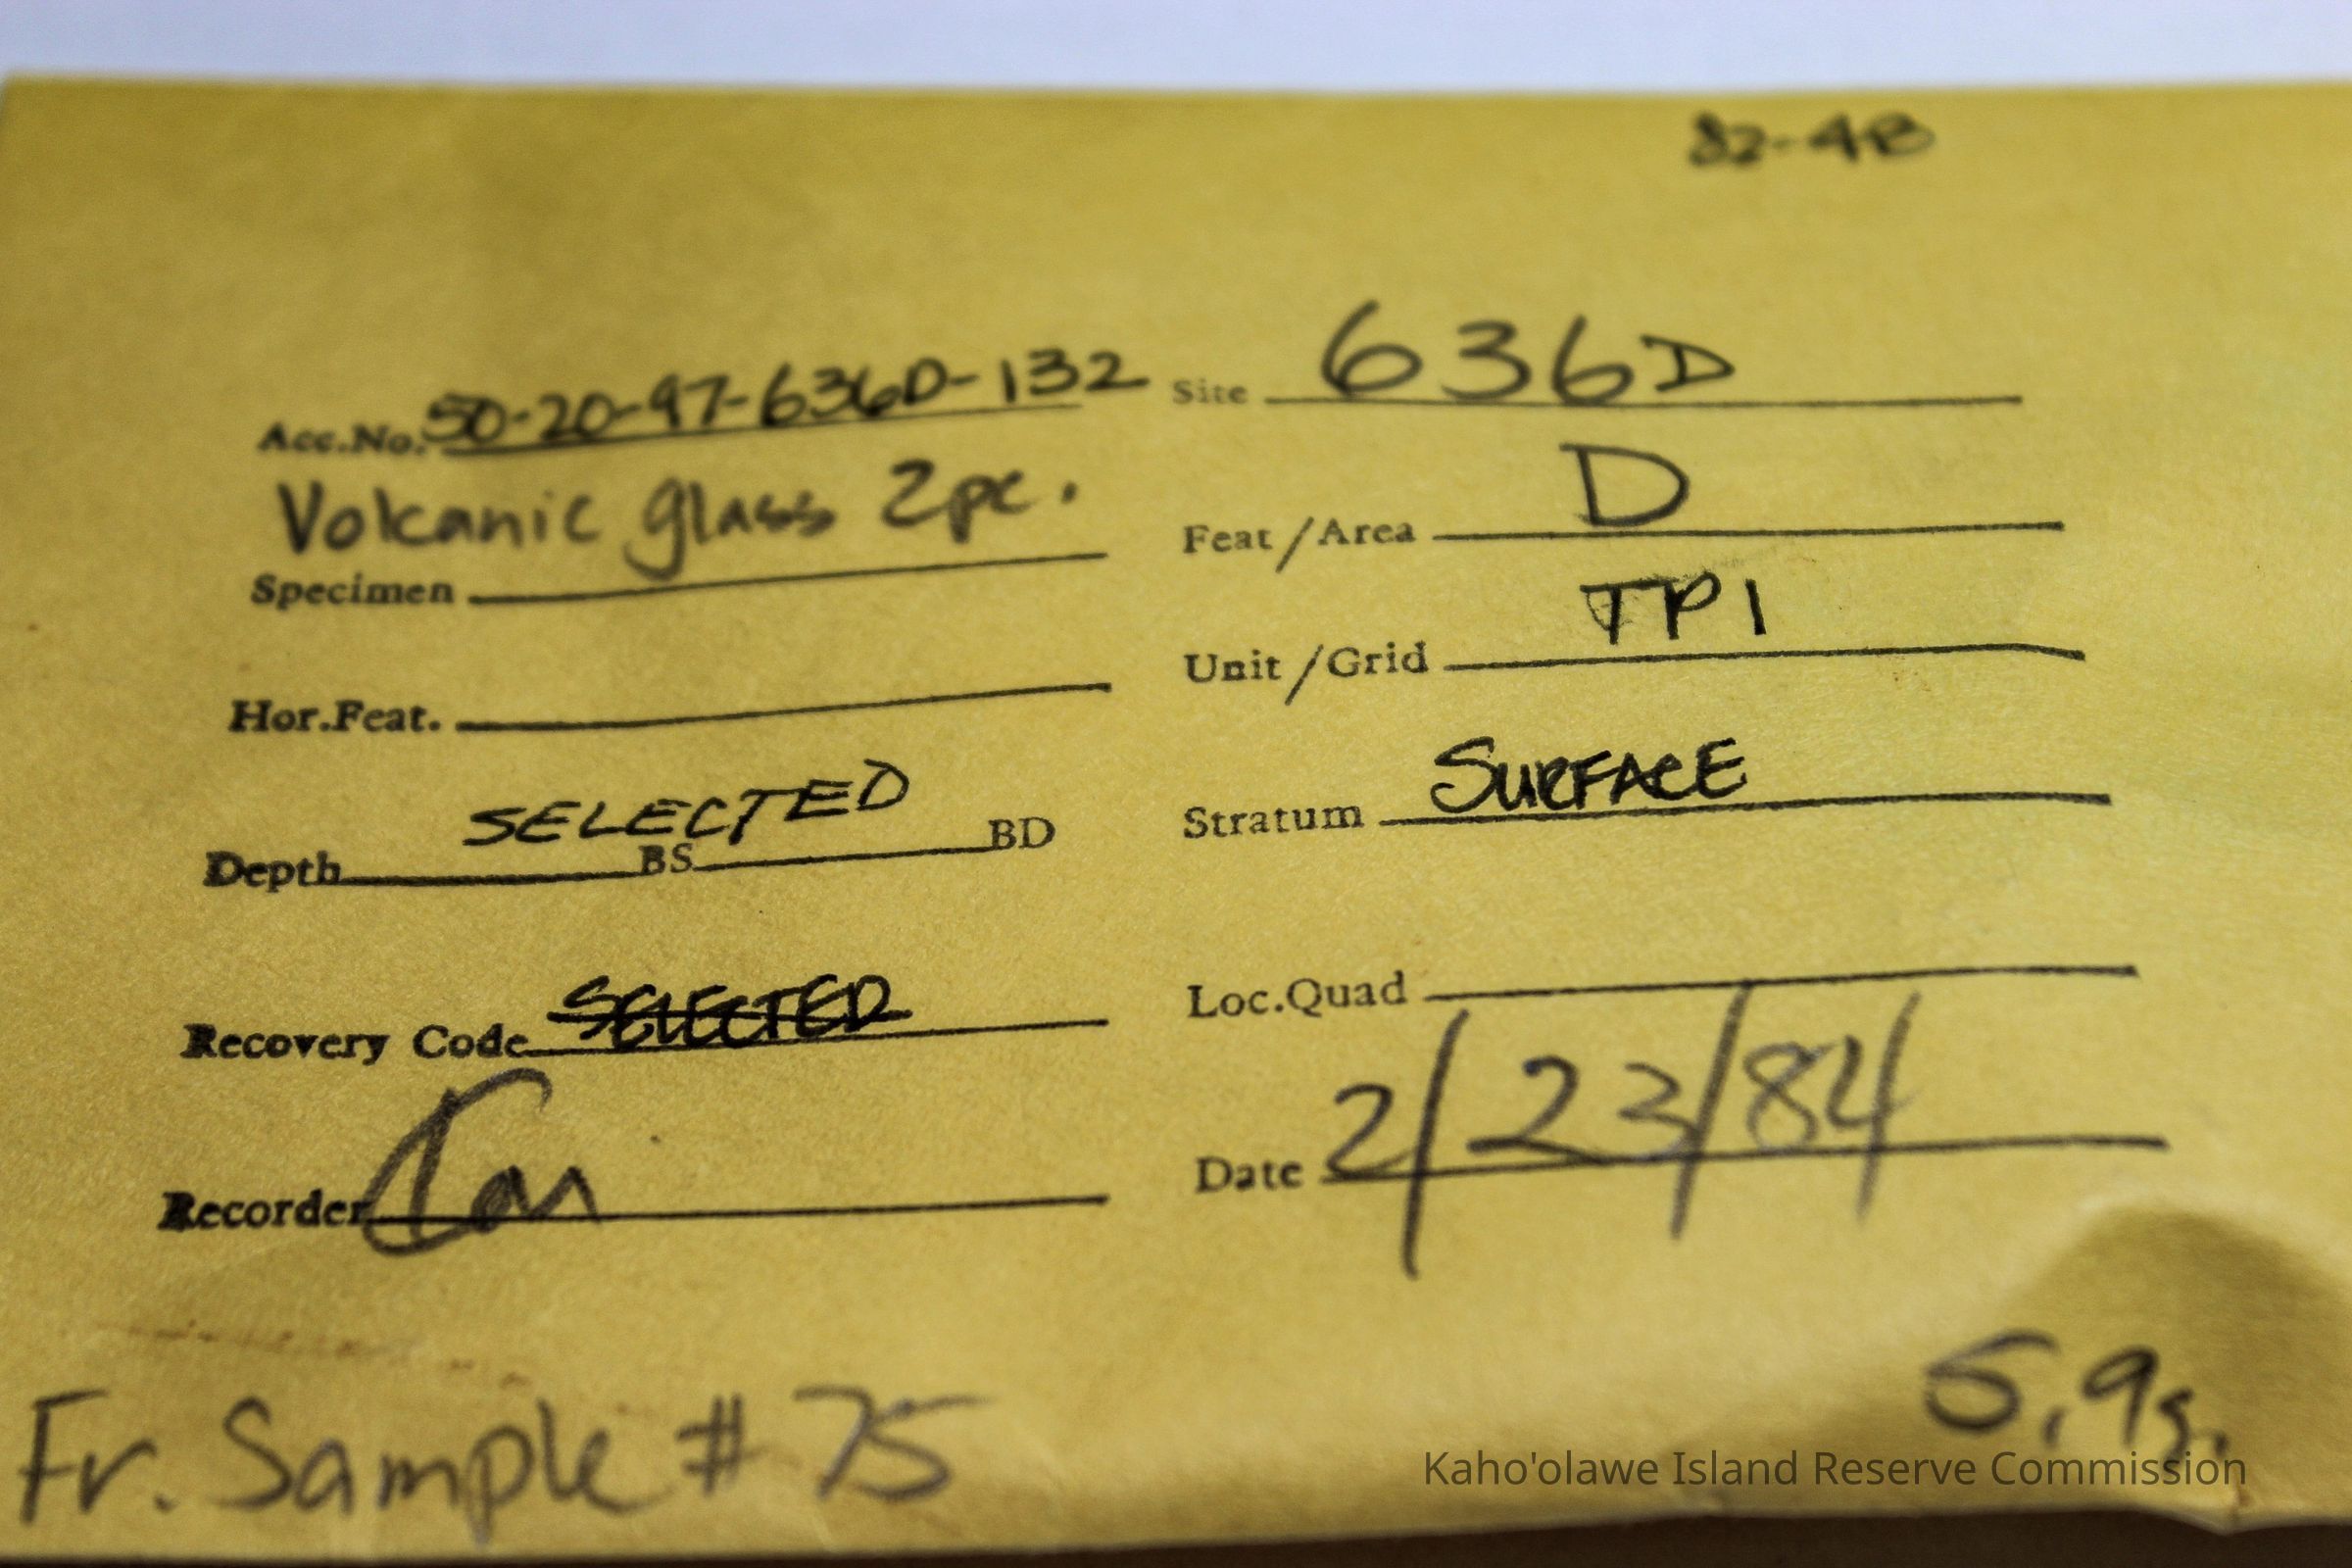 82-4B
Acc.No. 50-20-97-636D-132 Site 636D
Volcanic glass 2pc.
Specimen Feat/Area D
Hor.Feat. Unit/Grid TP1
Depth SELECTED BS BD Stratum SURFACE
Recovery Code SELECTED Loc.Quad
Recorder Date 2/23/84
Fr. Sample # 75 5.9g.
Kaho'olawe Island Reserve Commission